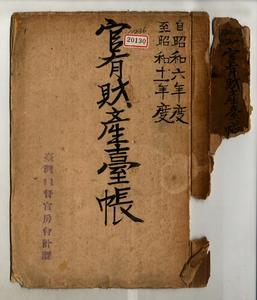 自昭和六年度
至昭和十一年度
20130
官有財產臺帳
臺灣總督官房會計課
官有財產臺帳